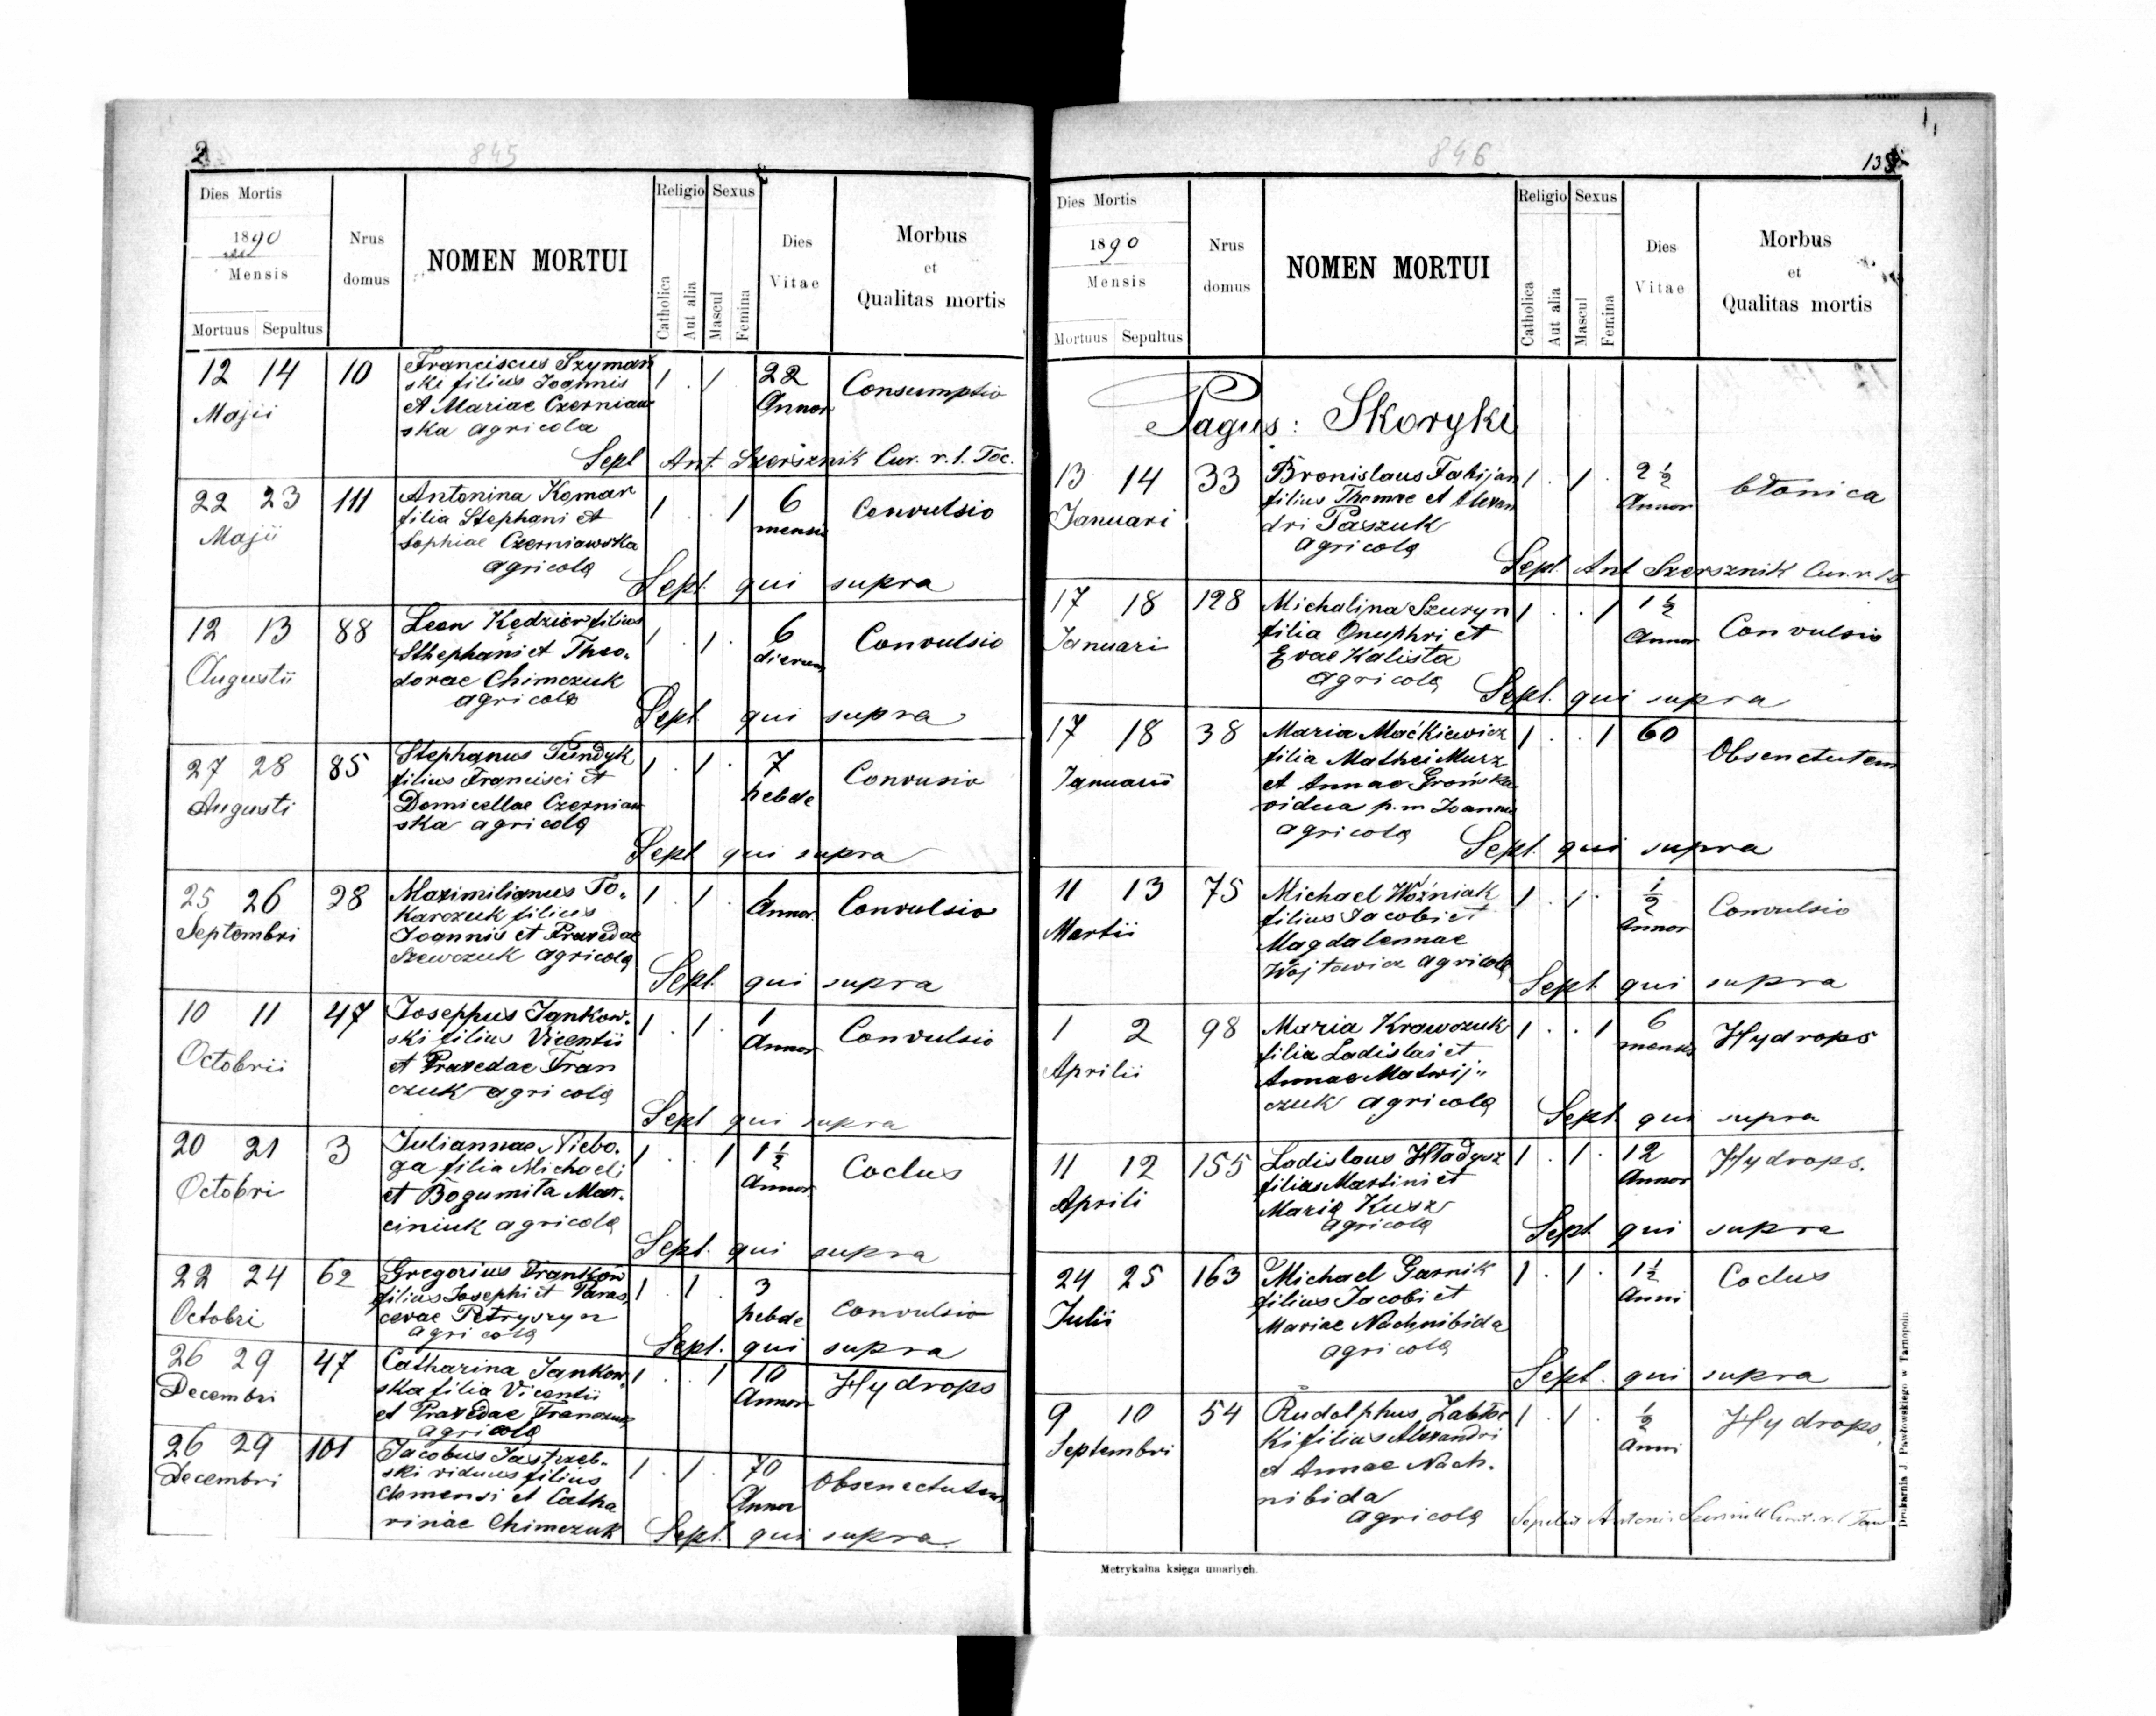 2
845
Dies Mortis
1890
Mensis
Mortuus Sepultus
Nrus domus
NOMEN MORTUI
Religio
Catholica
Aut alia
Sexus
Mascul
Femina
Dies Vitae
Morbus
et
Qualitas mortis
12 14 10 Franciscus Szymań 1 . 1 22 Consumptio
Majii ski filius Joannis Annor
et Mariae Czerniaw
ska agricola
Sept Ant. Szersznik Cur. r. l. Toc.
22 23 111 Antonina Komar 1 . . 1 6 Convulsio
Majii filia Stephani et mensis
Sophiae Czerniawska
agricola
Sept. qui supra
12 13 88 Leon Kędzior filius 1 . 1 . 6 Convulsio
Augustii Sthephani et Theo„ dierum
dorae Chimczuk
agricola
Sept. qui supra
27 28 85 Stephanus Pundyk 1 . 1 . 7 Convusio
Augusti filius Francisci et hebde
Domicellae Czerniaw
ska agricola
Sept qui supra
25 26 28 Maximilianus To„ 1 . 1 . 1 Convulsio
Septembri karczuk filius Annor.
Joannis et Praxedae
Szewczuk agricola
Sept. qui supra
10 11 47 Josephus Jankow„ 1 . 1 . 1 Convulsio
Octobrii ski filius Vicentii Annor
et Praxedae Fran
czuk agricola
Sept qui supra
20 21 3 Juliannae Niebo„ 1 . . 1 1 1/2 Coclus
Octobri ga filia Michaeli Annor
et Bogumiła Mar„
ciniuk agricola
Sept. qui supra
22 24 62 Gregorius Frankow 1 . 1 . 3 Convulsio
Octobri filius Josephi et Paras„ hebde
cevae Petryszyn
agricola
Sept. qui supra
26 29 47 Catharina Jankow„ 1 . . 1 10 Hydrops
Decembri ska filia Vicentii Annor
et Praxedae Franczuk
agricola
26 29 101 Jacobus Jastrzeb„ 1 . 1 . 70 Obsenectutem
Decembri ski viduus filius Annor
Clemensi et Catha
rinae Chimczuk
Sept. qui supra.
846
Dies Mortis
1890
Mensis
Mortuus Sepultus
Nrus domus
NOMEN MORTUI
Religio
Catholica
Aut alia
Sexus
Mascul
Femina
Dies Vitae
Morbus
et
Qualitas mortis
Pagus: Skoryki
13 14 33 Bronislaus Fabijan 1 . 1 . 2 1/2 błonica
Januari filius Thomae et Alexan Annor
dri Paszuk
agricola
Sept. Ant Szersznik Cur. r. l.
17 18 128 Michalina Szuryn 1 . . 1 1 1/2 Convulsio
Januari filia Onuphri et Annor
Evae Kalista
agricola
Sept. qui supra
17 18 38 Maria Maćkiewicz 1 . . 1 60 Obsenctutem
Januarii filia Mathei Murz
et Annae Grońska
vidua p. m Joannis
agricola
Sept. qui supra
11 13 75 Michael Woźniak 1 . 1 . 1/2 Convulsio
Martii filius Jacobi et Annor
Magdalennae
Wojtowicz agricola
Sept. qui supra
1 2 98 Maria Krawczuk 1 . . 1 6 Hydrops
Aprilii filia Ladislai et mensis
Annae Matwij„
czuk agricola
Sept. qui supra
11 12 155 Ladislaus Hładysz 1 . 1 . 12 Hydrops.
Aprili filius Martini et Annor
Maria Kusz
agricola
Sept qui supra
24 25 163 Michael Garnik 1 . 1 . 1 1/2 Coclus
Julii filius Jacobi et Anni
Mariae Nachnibida
agricola
Sept. qui supra
9 10 54 Rudolphus Zabłoc 1 . 1 . 1/2 Hydrops
Septembri ki filius Alexandri Anni
et Annae Nach„
nibida
agricola
Metrykalna księga umarłych.
Drukarnia J Pawłowskiego w Tarnopolu